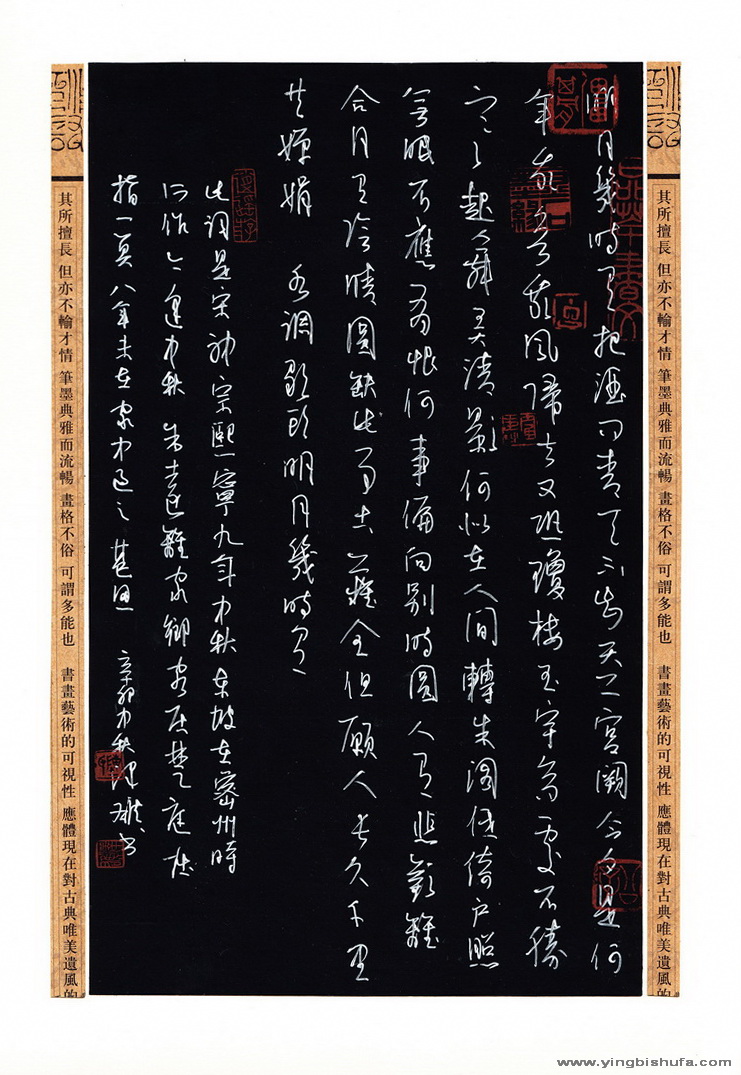 其所擅長 但亦不輸才情 筆墨典雅而流暢 畫格不俗 可謂多能也 書畫藝術的可視性 應體現在對古典唯美遺風的
明月幾時有把酒問青天不知天上宮闕今夕是何
年我欲乘風歸去又恐瓊樓玉宇高處不勝
寒起舞弄清影何似在人間轉朱閣低綺户照
無眠不應有恨何事偏向別時圓人有悲歡離
合月有陰晴圓缺此事古難全但願人長久千里
共嬋娟 水調歌頭明月幾時有
此詞是宋神宗熙寧九年中秋東坡在密州時
所作今逢中秋吾遠離家鄉客居楚庭屈
指一算八年未在家中過之甚思 辛卯中秋 書
其所擅長 但亦不輸才情 筆墨典雅而流暢 畫格不俗 可謂多能也 書畫藝術的可視性 應體現在對古典唯美遺風的
www.yingbishufa.com